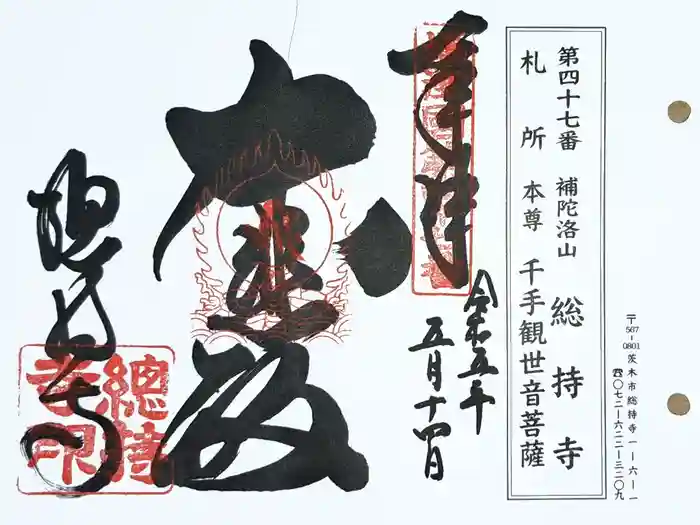 第四十七番 補陀洛山 総持寺
札所 本尊 千手観世音菩薩
〒567-0801 茨木市総持寺一ー六ー一
☎〇七二ー六二二ー三二〇九
奉拝
令和五年
五月十四日
大悲殿
総持寺
總持
寺印